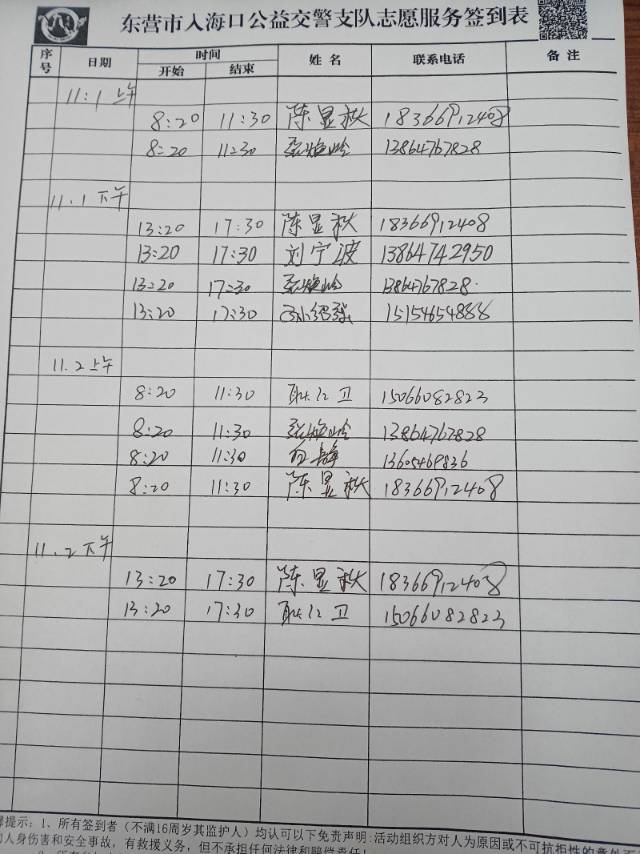 东营市入海口公益交警支队志愿服务签到表
序号 日期 时间 开始 结束 姓名 联系电话 备注
11.1 上午
8:20 11:30 陈显秋 18366912408
8:20 11:30 13864767828
11.1 下午
13:20 17:30 陈显秋 18366912408
13:20 17:30 刘宁波 13864742950
13:20 17:30 13864767828
13:20 17:30 15154654888
11.2 上午
8:20 11:30 耿江卫 15066082823
8:20 11:30 13864767828
8:20 11:30 13605469836
8:20 11:30 陈显秋 18366912408
11.2 下午
13:20 17:30 陈显秋 18366912408
13:20 17:30 耿江卫 15066082823
提示：1、所有签到者（不满16周岁其监护人）均认可以下免责声明:活动组织方对人为原因或不可抗拒性的意外
人身伤害和安全事故，有救援义务，但不承担任何法律和赔偿责任！